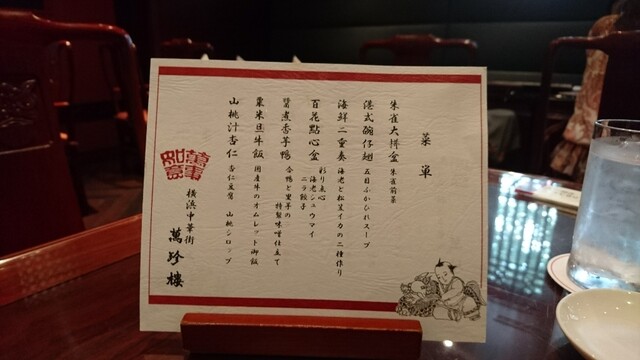 菜單
朱雀大拼盒 朱雀前菜
港式碗仔翅 五目ふかひれスープ
海鮮二重奏 海老と松茸イカの二種作り
百花點心盒 彩り点心
海老シュウマイ
ニラ餃子
醬煮香芋鴨 合鴨と里芋の
特製味噌仕立て
粟米旦牛飯 国産牛のオムレット御飯
山桃汁杏仁 杏仁豆腐 山桃シロップ
萬事如意
横浜中華街
萬珍樓